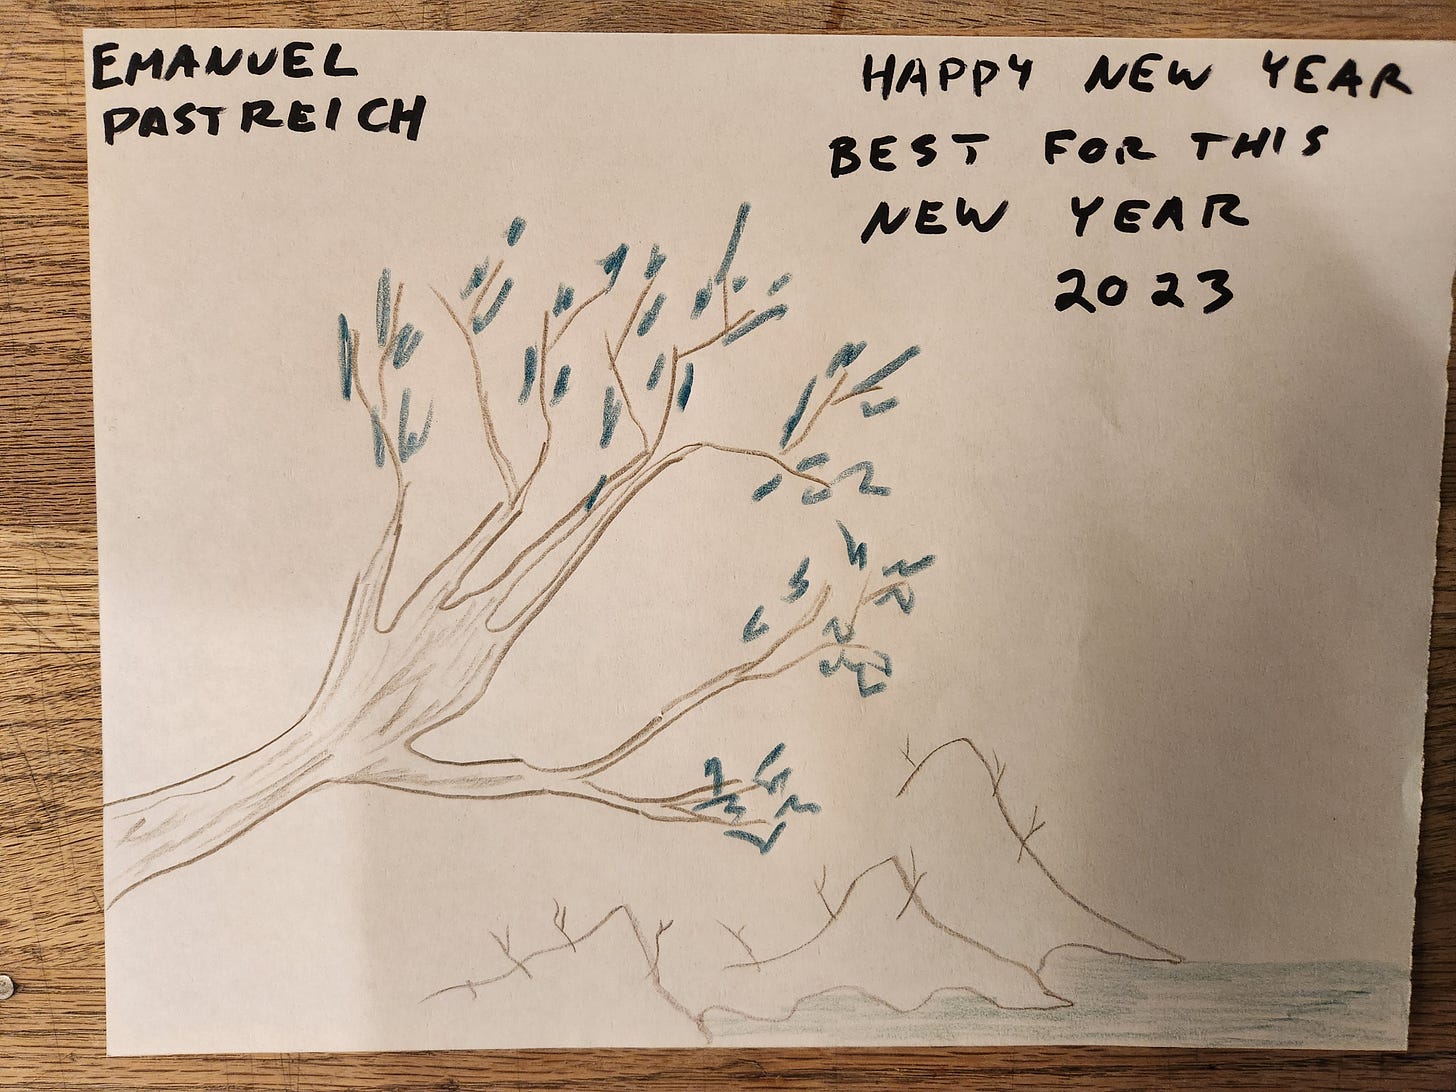 EMANUEL
PASTREICH
HAPPY NEW YEAR
BEST FOR THIS
NEW YEAR
2023